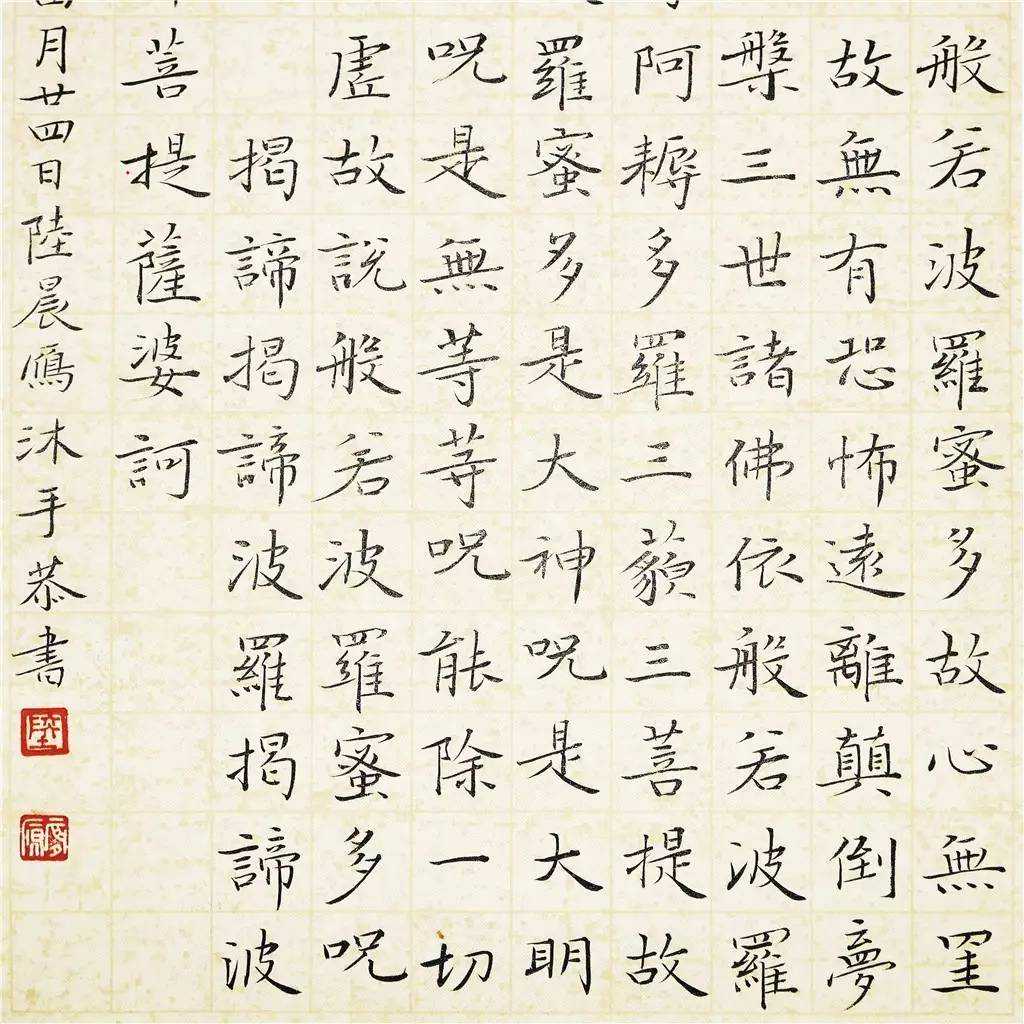 般若波羅蜜多故心無罣
故無有恐怖遠離顛倒夢
槃三世諸佛依般若波羅
阿耨多羅三藐三菩提故
羅蜜多是大神呪是大明
呪是無等等呪能除一切
虛故說般若波羅蜜多呪
揭諦揭諦波羅揭諦波
菩提薩婆訶
月廿四日陸晨鴈沐手恭書